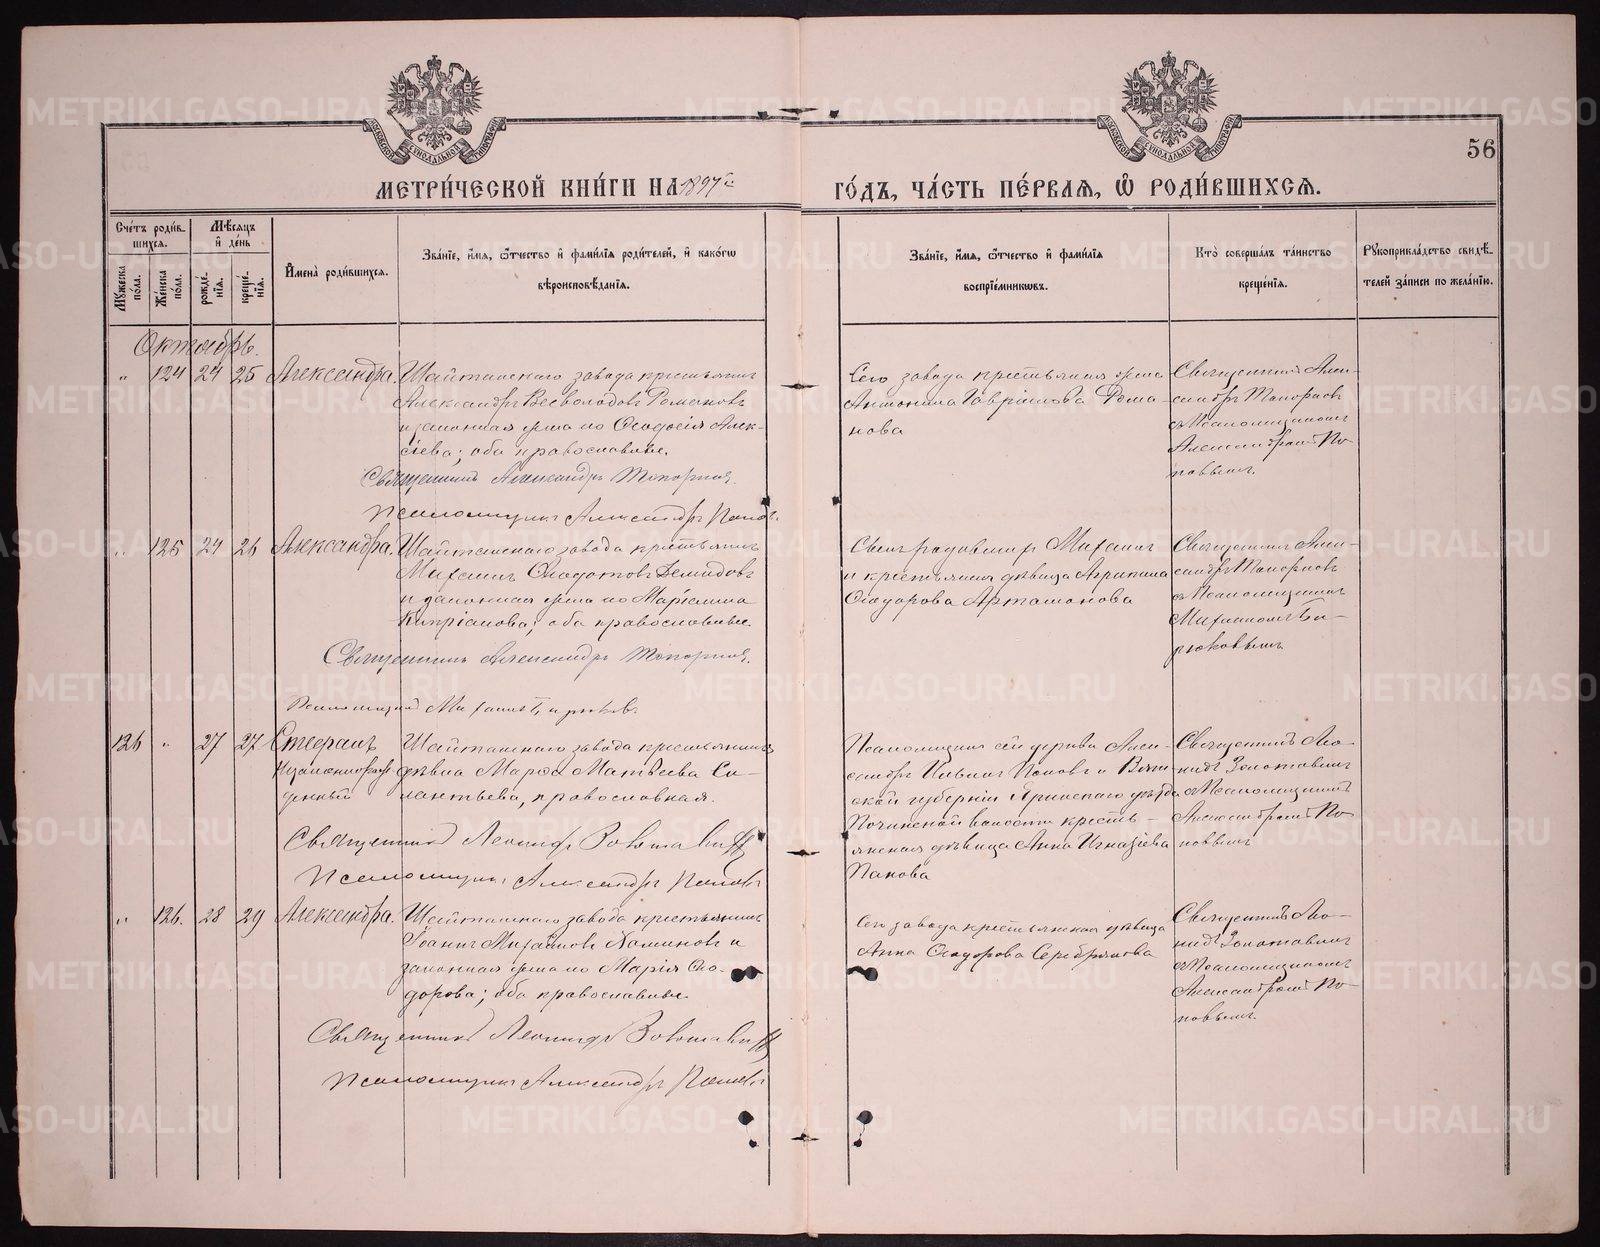 МЕТРИ́ЧЕСКОЙ КНИ́ГИ НА 1897й ГО́ДЪ, ЧА́СТЬ ПЕ́РВАЯ, Ѿ РОДИ́ВШИХСЯ.
56
Сче́тъ роди́в-
шихся.
Му́жеска по́ла.
Же́нска по́ла.
Мѣ́сяцъ и҆ де́нь
рожде́-
нїя.
креще́-
нїя.
И҆мена̀ роди́вшихся.
Зва́нїе, и҆́мя, ѻ҆́тчество и҆ фами́лїя роди́телей, и҆ како́гѡ
вѣроисповѣ́данїя.
Зва́нїе, и҆́мя, ѻ҆́тчество и҆ фами́лїя
воспрїе́мникѡвъ.
Кто̀ соверша́лъ та́инство
креще́нїя.
Рꙋкоприкла́дство свидѣ́-
телей за́писи по жела́нїю.
Октябрь.
„ 124 24 25 Александра.
Шайтанскаго завода крестьянинъ
Александръ Всеволодовъ Романовъ
и законная жена его Ѳеодосія Алек-
сіева; оба православные.
Священникъ Александръ Топорковъ.
Псаломщикъ Александръ Поповъ.
Сего завода крестьянская жена
Антонина Гаврилова Рома-
нова
Священникъ Алек-
сандръ Топорковъ
съ Псаломщикомъ
Александромъ По-
повымъ.
„ 125 24 26 Александра.
Шайтанскаго завода крестьянинъ
Михаилъ Ѳеодотовъ Демидовъ
и законная жена его Маріамна
Кипріанова; оба православные.
Священникъ Александръ Топорковъ.
Псаломщикъ Михаилъ Бирюковъ.
Михаилъ
и крестьянская дѣвица Агрипина
Ѳеодорова Артамонова
Священникъ Алек-
сандръ Топорковъ
съ Псаломщикомъ
Михаиломъ Би-
рюковымъ
126 „ 27 27 Стефанъ
Незаконнорож-
денный
Шайтанскаго завода крестьянская
дѣвица Марѳа Матвѣева Си-
лантьева, православная.
Священникъ Леонидъ Золотавинъ
Псаломщикъ Александръ Поповъ
Псаломщикъ сей церкви Алек-
сандръ Поповъ и Вят-
ской губерніи уѣзда
Починской волости кресть-
янская дѣвица Анна Игнатіева
Панова
Священникъ Лео-
нидъ Золотавинъ
съ Псаломщикомъ
Александромъ По-
повымъ
„ 126. 28 29 Александра.
Шайтанскаго завода крестьянинъ
Іоаннъ Михайловъ и
законная жена его Марія Ѳео-
дорова; оба православные.
Священникъ Леонидъ Золотавинъ
Псаломщикъ Александръ Поповъ
Сего завода крестьянская дѣвица
Анна Ѳеодорова Серебрякова
Священникъ Лео-
нидъ Золотавинъ
съ Псаломщикомъ
Александромъ По-
повымъ.
METRIKI.GASO-URAL.RU